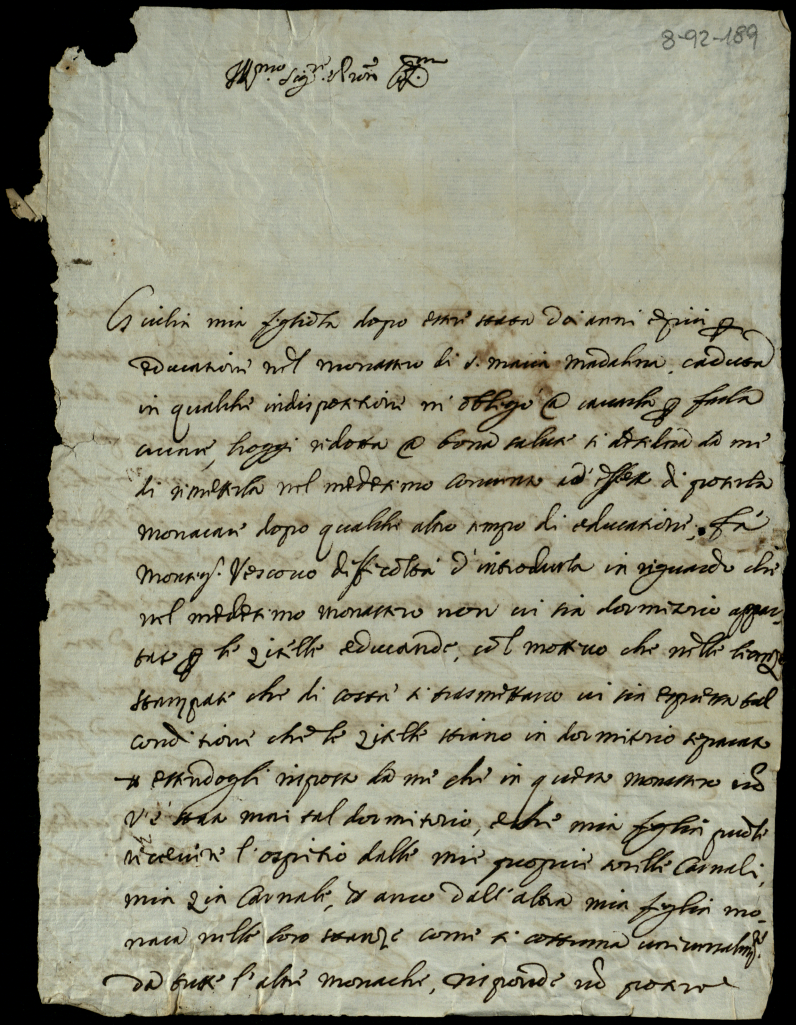 8-92-189
Ill.mo Sig.re e Pron
Giulia mia figliola dopo essere stata doi anni e più p
educatione nel monastero di S. Maria Madalena, caduta
in qualche indispositione m'obligò a cavarla p farla
curare, hoggi ridotta a bona salute si desidera da me
di rimetterla nel medesimo convento ad effetto di poterla
monacare dopo qualche altro tempo di educatione; Fà
Monsig.r Vescovo difficoltà d'introdurla in riguardo che
nel medesimo monastero non vi sia dormitorio appar-
tato p le zitelle educande, col motivo che nelle licenze
stampate che di costà si trasmettano vi sia espressa tal
conditione che le zitelle stiano in dormitorio separato
et essendogli risposto da me che in questo monastero nō
v'è stato mai tal dormitorio, e che mia figlia puole
ricevere l'ospitio dalle mie proprie sorelle Carnali,
mia zia Carnale, et anco dall'altra mia figlia mo-
naca nelle loro stanze come si costuma universalm.te
da tutte l'altre monache, risponde nō potere